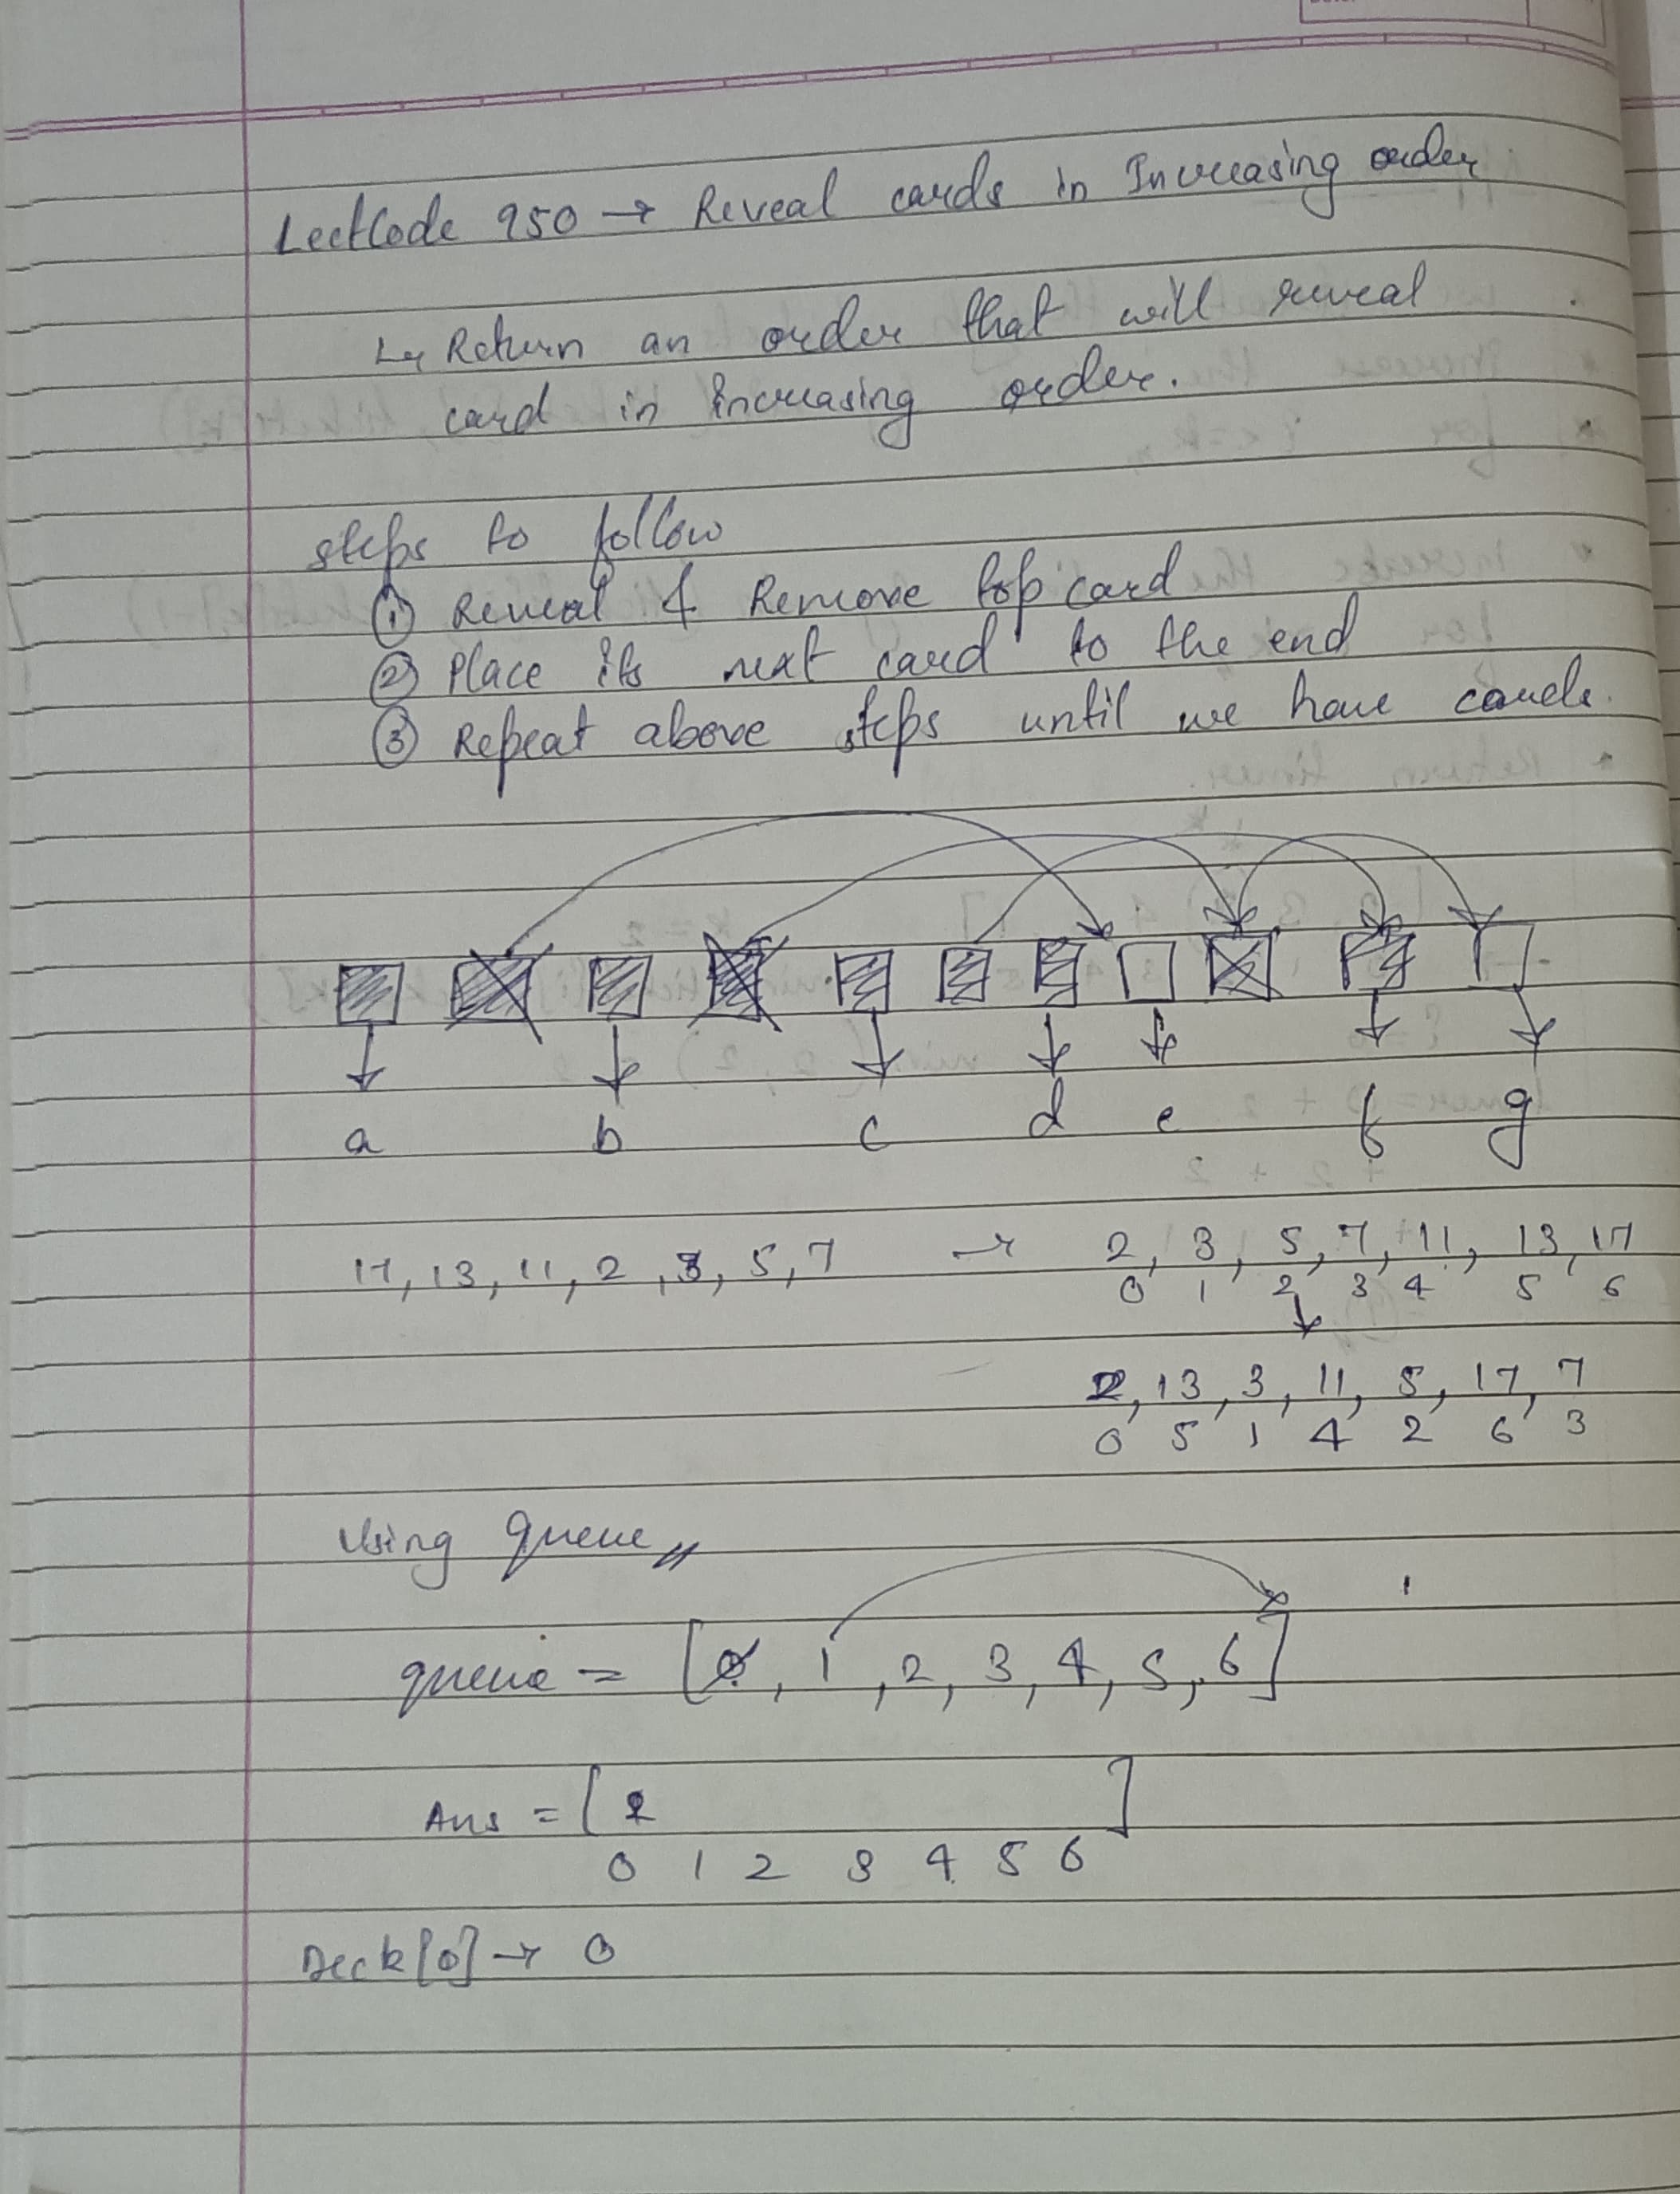 LeetCode 950 → Reveal cards in Increasing order
↳ Return an order that will reveal
card in increasing order.
steps to follow
① Reveal & Remove top card
② Place its next card to the end
③ Repeat above steps until we have cards.
a b c d e f g
17, 13, 11, 2, 3, 5, 7 → 2, 3, 5, 7, 11, 13, 17
0 1 2 3 4 5 6
↓
2, 13, 3, 11, 5, 17, 7
0 5 1 4 2 6 3
Using queue
queue = [0, 1, 2, 3, 4, 5, 6]
Ans = [2 ]
0 1 2 3 4 5 6
Deck[0] → 0